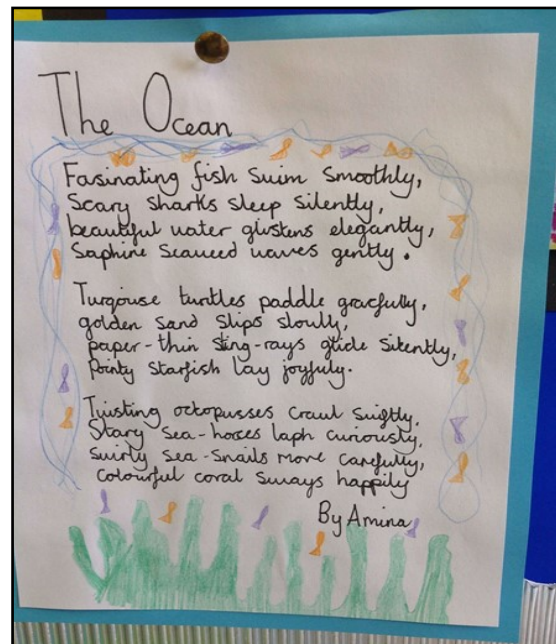 The Ocean
Fasinating fish swim smoothly,
Scary sharks sleep silently,
beautiful water glistens elegantly,
Saphire seaweed waves gently.
Turqouse turtles paddle gracfully,
golden sand slips slowly,
paper-thin sting-rays glide silently,
Pointy starfish lay joyfuly.
Twisting octopusses crawl swiftly,
Stary sea-horses laph curiously,
swirly sea-snails move carefully,
colourful coral sways happily
By Amina